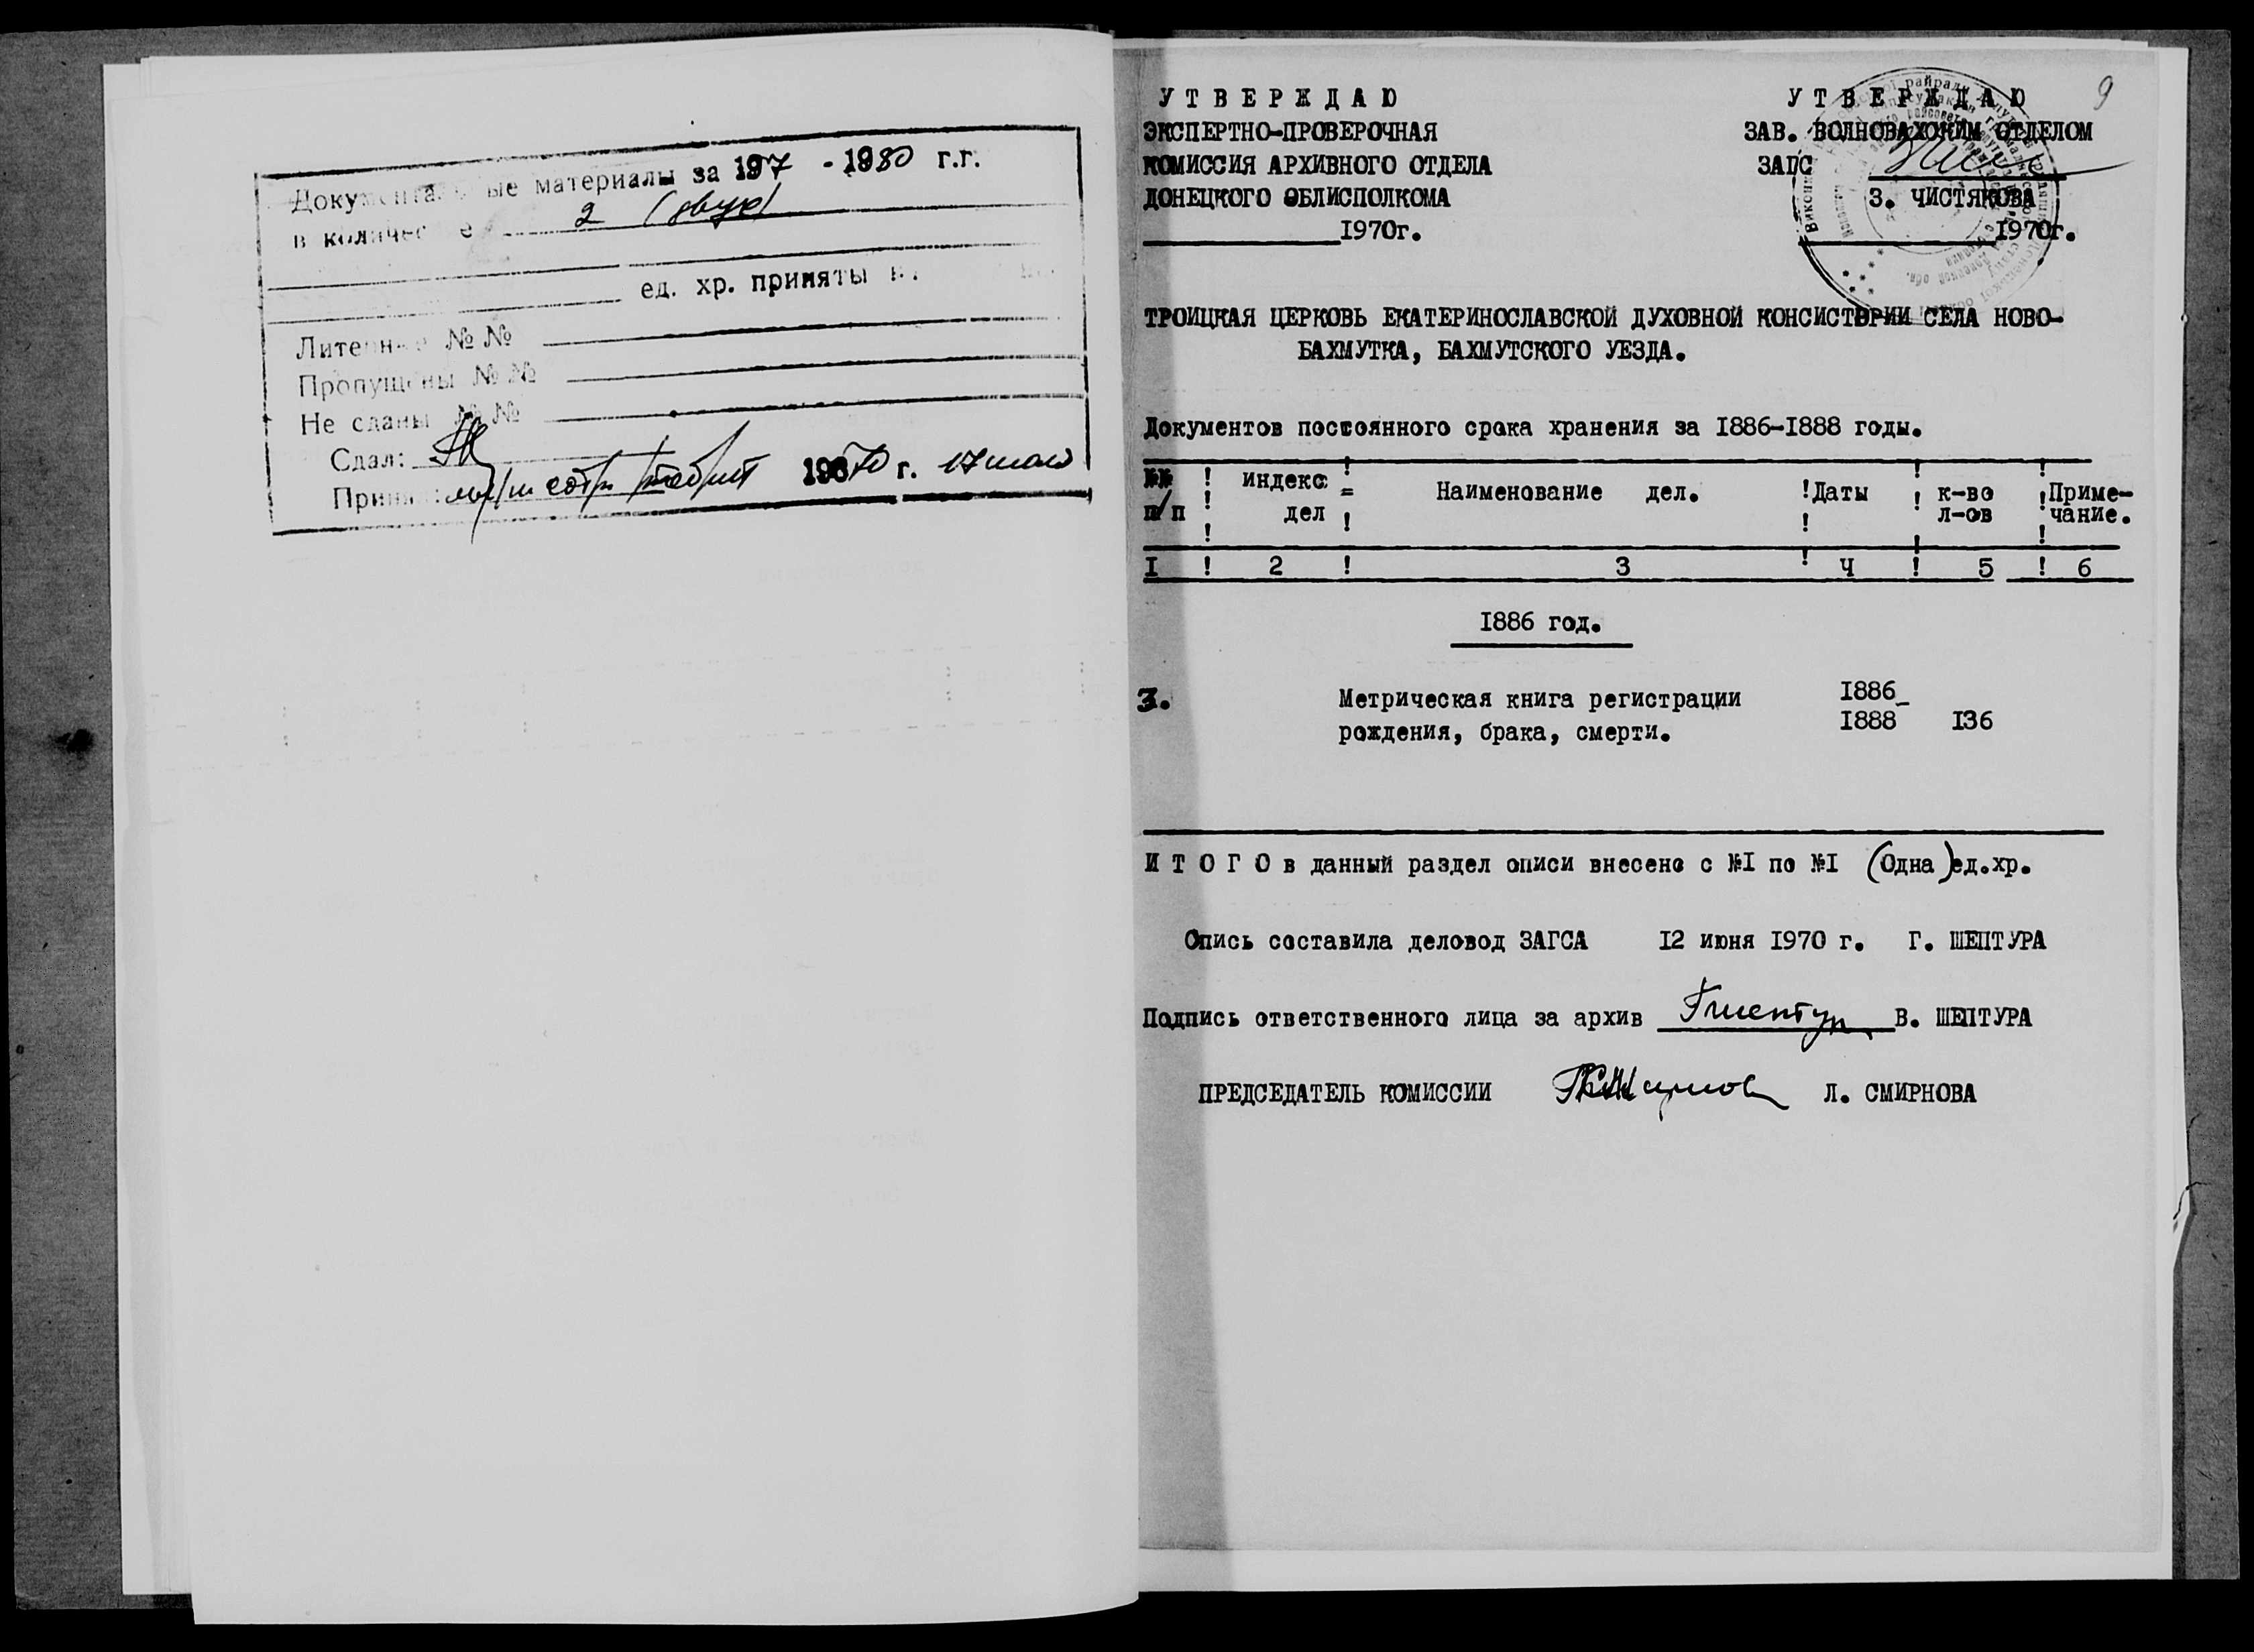 Документа ые материалы за 197 - 1980 г.г.
в количес е 2 (двух)
ед. хр. приняты
Литерн №№
Пропущены №№
Не сданы №№
Сдал:
Принял: 1970 г. 17 июля
9
УТВЕРЖДАЮ
ЭКСПЕРТНО-ПРОВЕРОЧНАЯ
КОМИССИЯ АРХИВНОГО ОТДЕЛА
ДОНЕЦКОГО ОБЛИСПОЛКОМА
1970г.
УТВЕРЖДАЮ
ЗАВ. ВОЛНОВАХСКИМ ОТДЕЛОМ
ЗАГС
З. ЧИСТЯКОВА
1970г.
ТРОИЦКАЯ ЦЕРКОВЬ ЕКАТЕРИНОСЛАВСКОЙ ДУХОВНОЙ КОНСИСТОРИИ СЕЛА НОВО-
БАХМУТКА, БАХМУТСКОГО УЕЗДА.
Документов постоянного срока хранения за 1886-1888 годы.
№№ ! индекс ! Наименование дел. !Даты ! к-во !Приме-
п/п ! дел ! ! л-ов !чание.
I ! 2 ! 3 ! 4 ! 5 ! 6
1886 год.
3. Метрическая книга регистрации 1886-
рождения, брака, смерти. 1888 136
И Т О Г О в данный раздел описи внесено с №I по №I (Одна)ед.хр.
Опись составила деловод ЗАГСА 12 июня 1970 г. Г. ШЕПТУРА
Подпись ответственного лица за архив Гшептур В. ШЕПТУРА
ПРЕДСЕДАТЕЛЬ КОМИССИИ Л. СМИРНОВА